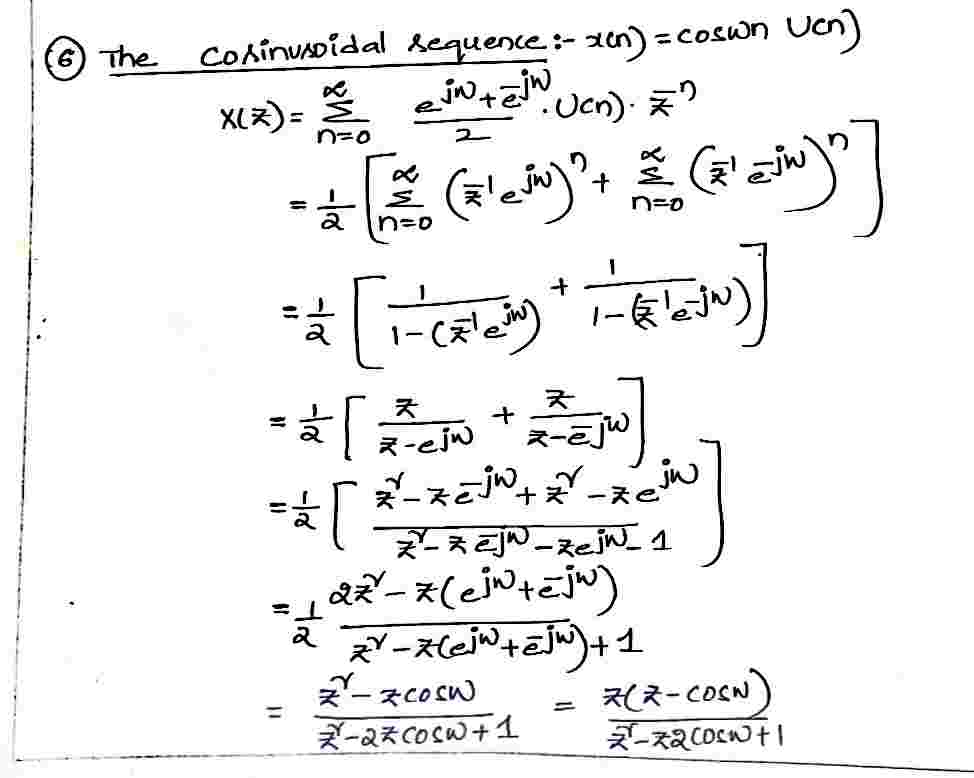 ⑥ The Cosinusoidal sequence :- x(n) = cosωn U(n)
X(z) = ∑_{n=0}^{∞} (e^{jω} + e^{-jω})/2 . U(n) . z^{-n}
= 1/2 [ ∑_{n=0}^{∞} (z^{-1} e^{jω})^n + ∑_{n=0}^{∞} (z^{-1} e^{-jω})^n ]
= 1/2 [ 1/(1-(z^{-1} e^{jω})) + 1/(1-(z^{-1} e^{-jω})) ]
= 1/2 [ z/(z-e^{jω}) + z/(z-e^{-jω}) ]
= 1/2 [ (z^2 - z e^{-jω} + z^2 - z e^{jω})/(z^2 - z e^{-jω} - z e^{jω} - 1) ]
= 1/2 (2z^2 - z(e^{jω} + e^{-jω}))/(z^2 - z(e^{jω} + e^{-jω}) + 1)
= (z^2 - z cosω)/(z^2 - 2z cosω + 1) = z(z - cosω)/(z^2 - z2cosω + 1)